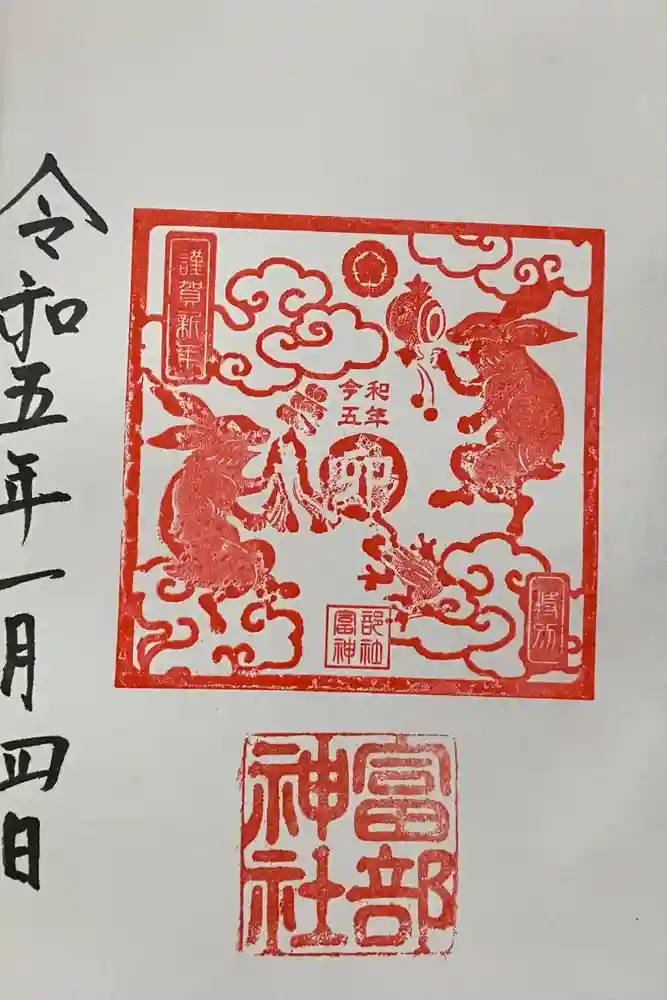 令和五年一月四日
謹賀新年
令和
五年
卯
富部神社
富部神社